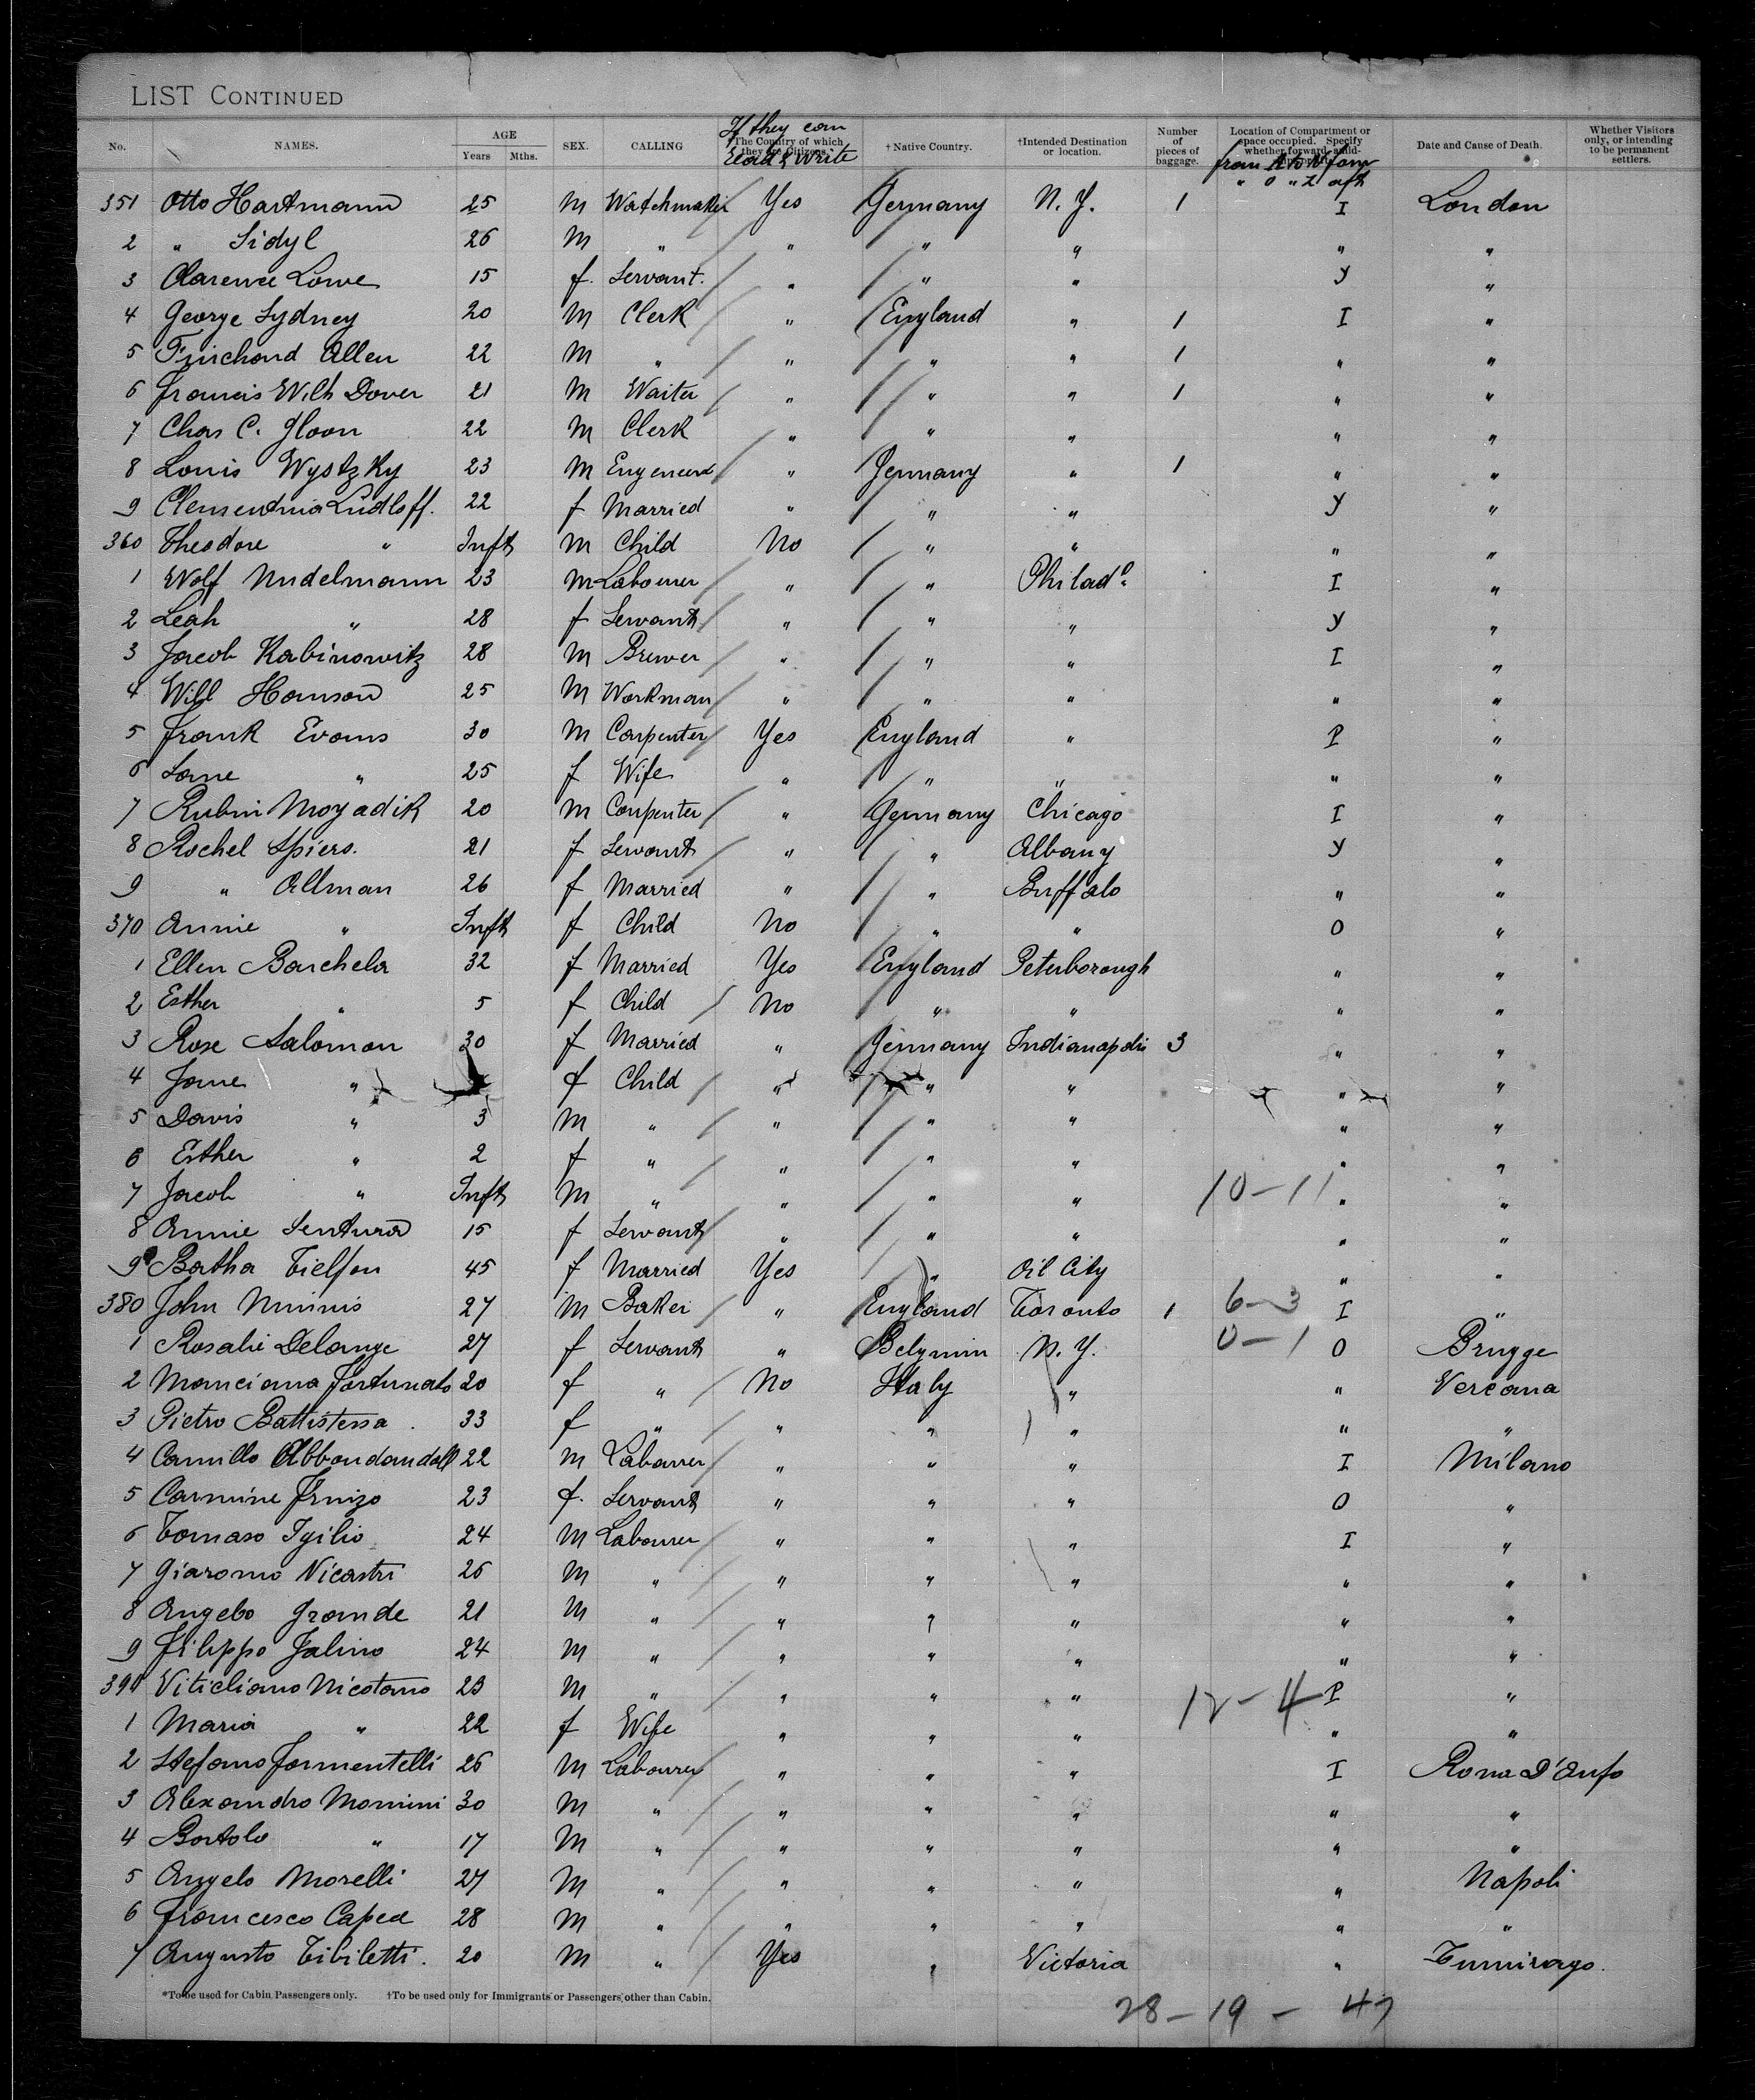 LIST CONTINUED
No. NAMES. AGE Years Mths. SEX. CALLING The Country of which they are Citizens. †Native Country. †Intended Destination or location. Number of pieces of baggage. Location of Compartment or space occupied. Specify whether forward, Date and Cause of Death. Whether Visitors only, or intending to be permanent settlers.
If they can Read & Write
from A to N forw
" O " Z aft
351 Otto Hartmann 25 M Watchmaker Yes Germany N.Y. 1 I London
2 " Sidyl 26 M " " " " " "
3 Clarence Lowe 15 f. Servant. " " " Y "
4 George Sydney 20 M Clerk " England " 1 I "
5 Allen 22 M " " " " 1 " "
6 Francis Wilh Dover 21 M Waiter " " " 1 " "
7 Chas C. Gloon 22 M Clerk " " " " "
8 Louis Wystzky 23 M Engeneer " Germany " 1 " "
9 Clementina Ludloff. 22 f Married " " " Y "
360 Theodore " Inft M Child No " " " "
1 Wolf Nudelmann 23 M Labourer " " Philada I "
2 Leah " 28 f Servant " " " Y "
3 Jacob Kabinowitz 28 M Brewer " " " I "
4 Will Hanson 25 M Workman " " " " "
5 Frank Evans 30 M Carpenter Yes England " P "
6 " 25 f Wife " " " " "
7 Rubin Moyadik 20 M Carpenter " Germany Chicago I "
8 Rachel Spiers. 21 f Servant " " Albany Y "
9 " Allman 26 f Married " " Buffalo " "
370 Annie " Inft f Child No " " O "
1 Ellen Barchela 32 f Married Yes England Peterborough " "
2 Esther " 5 f Child No " " " "
3 Rose Salomon 30 f Married " Germany Indianapolis 3 " "
4 Jane " f Child " " " " "
5 Davis " 3 M " " " " " "
6 Esther " 2 f " " " " " "
7 Jacob " Inft M " " " " 10-11 " "
8 Annie Sentura 15 f Servant " " " " "
9 Batha Tielfon 45 f Married Yes " Oil City " "
380 John Minnis 27 M Baker " England Toronto 1 6-3 I "
1 Rosalie Delange 27 f Servant " Belgium N.Y. 0-1 O Brugge
2 Manciana Fortunato 20 f " No Italy " " Vercana
3 Pietro Battistessa 33 f " " " " " "
4 Camillo Abbondandoll 22 M Labourer " " " I Milano
5 Carmine 23 f. Servant " " " O "
6 Tomaso Igilio 24 M Labourer " " " I "
7 Giaromo Nicastri 26 M " " " " " "
8 Angelo Grande 21 M " " " " " "
9 Filippo Jalino 24 M " " " " " "
390 Viticliano Nicotano 23 M " " " " 12-4 P "
1 Maria " 22 f Wife " " " " "
2 Stefano Formentelli 26 M Labourer " " " I Roma D'Anfo
3 Alexandro Momini 30 M " " " " " "
4 Bortolo " 17 M " " " " " "
5 Angelo Morelli 27 M " " " " " Napoli
6 Francesco Caped 28 M " " " " " "
7 Augusto Tibiletti. 20 M " Yes " Victoria " Tumirago.
*To be used for Cabin Passengers only. †To be used only for Immigrants or Passengers other than Cabin.
28 - 19 - 47